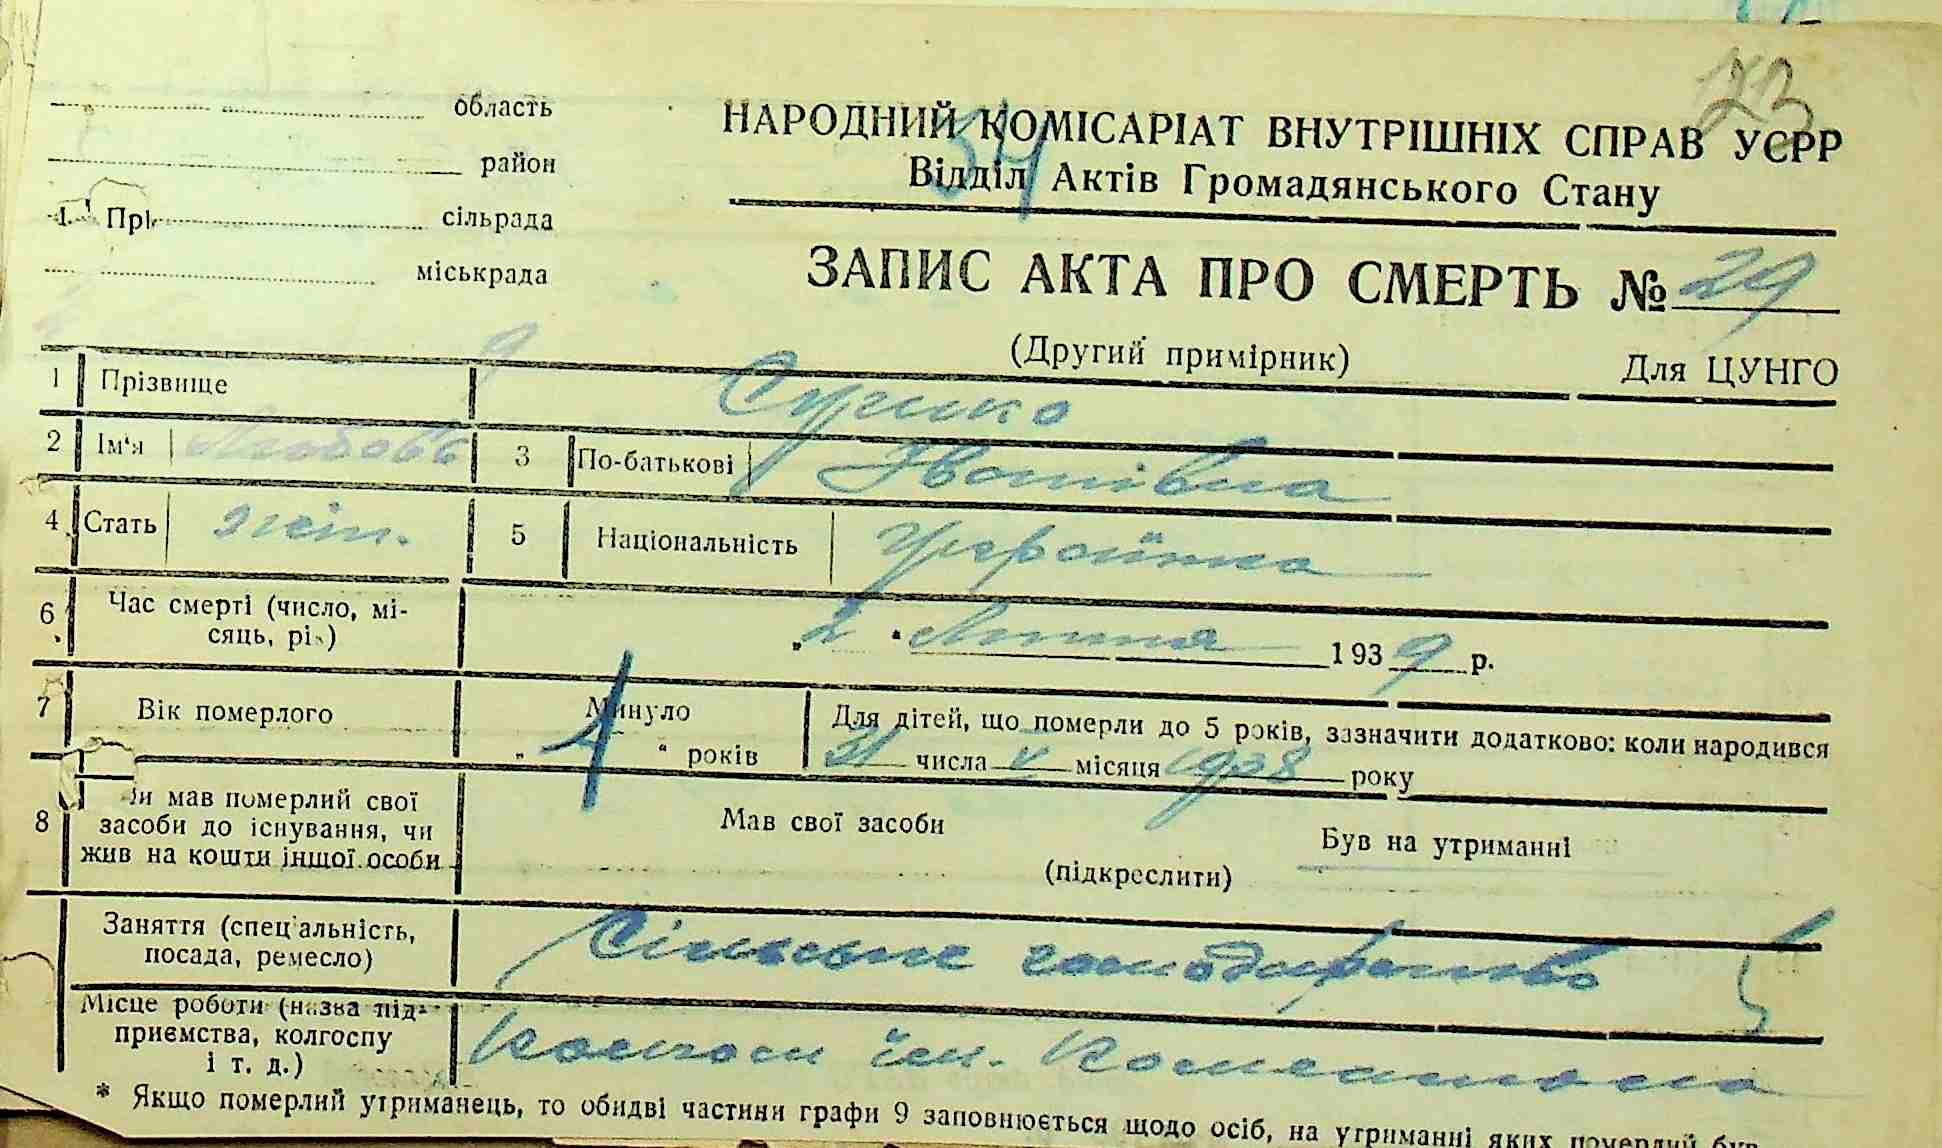 123
область
район
сільрада
міськрада
НАРОДНИЙ КОМІСАРІАТ ВНУТРІШНІХ СПРАВ УСРР
34
Відділ Актів Громадянського Стану
ЗАПИС АКТА ПРО СМЕРТЬ № 29
(Другий примірник) Для ЦУНГО
1 Прізвище Сушко
2 Ім'я Любовь 3 По-батькові Іванівна
4 Стать жін. 5 Національність Українка
6 Час смерті (число, мі-
сяць, рік) „2 " Липня 1939 р.
7 Вік померлого Минуло
„ 1 " років
Для дітей, що померли до 5 років, зазначити додатково: коли народився
21 числа V місяця 1938 року
8 Чи мав померлий свої
засоби до існування, чи
жив на кошти іншої особи
Мав свої засоби Був на утриманні
(підкреслити)
Заняття (спеціальність,
посада, ремесло) Сільське господарство
Місце роботи (назва під-
приємства, колгоспу
і т. д.) Колгосп ім.
* Якщо померлий утриманець, то обидві частини графи 9 заповнюється щодо осіб, на утриманні яких померлий був